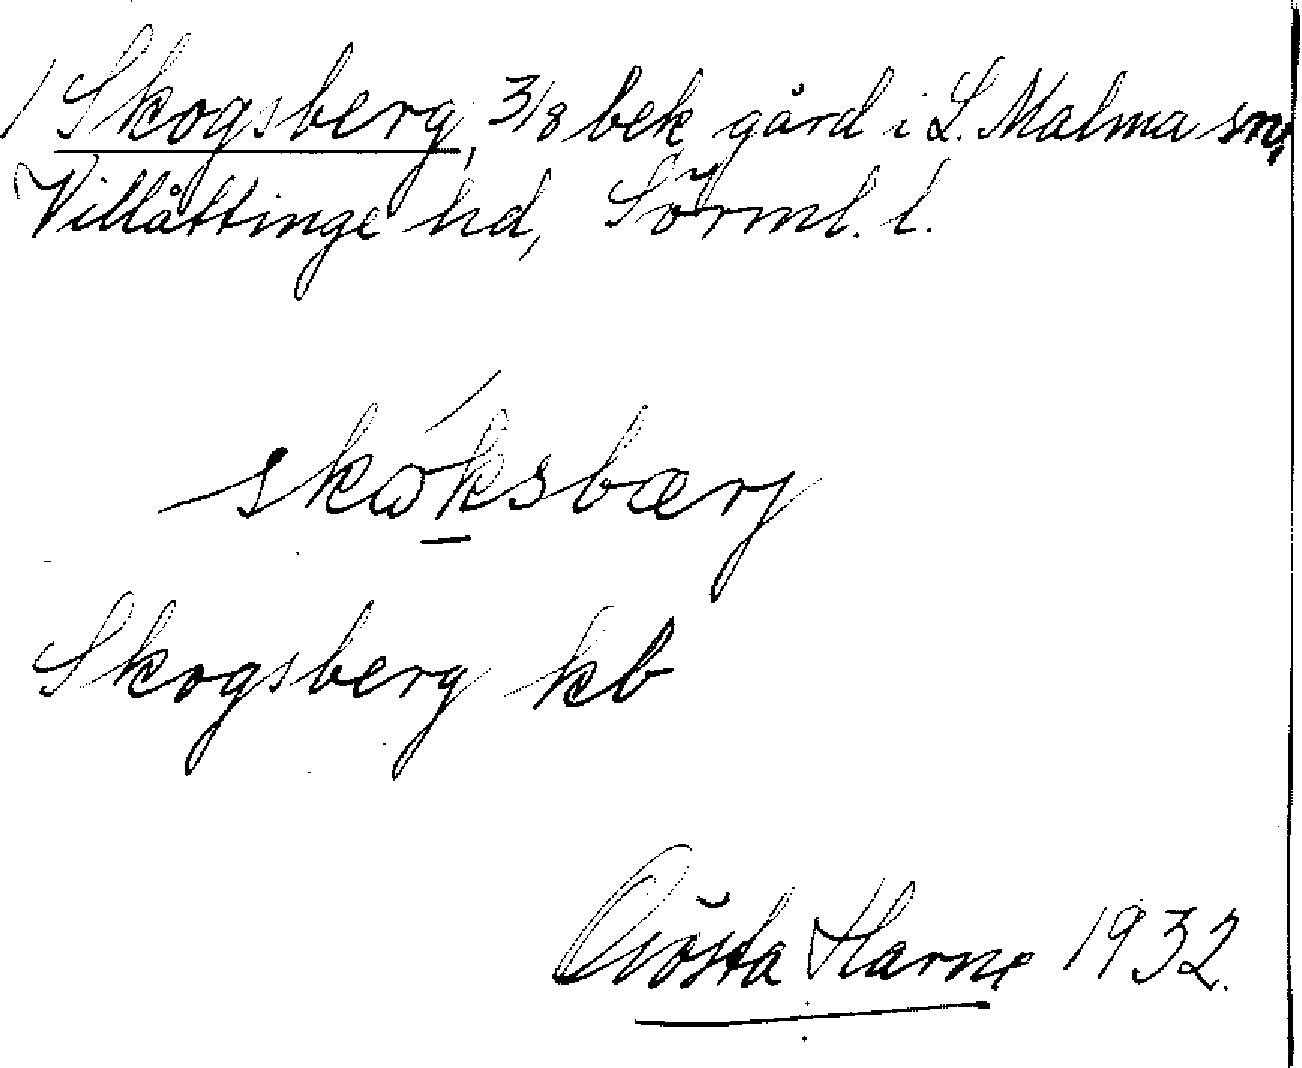 1 Skogsberg, 3/8 bek gård i L. Malma sn,
Villåttinge hd, Sörml. l.
skɷ́ksbærj
Skogsberg kb
Gösta Harne 1932.